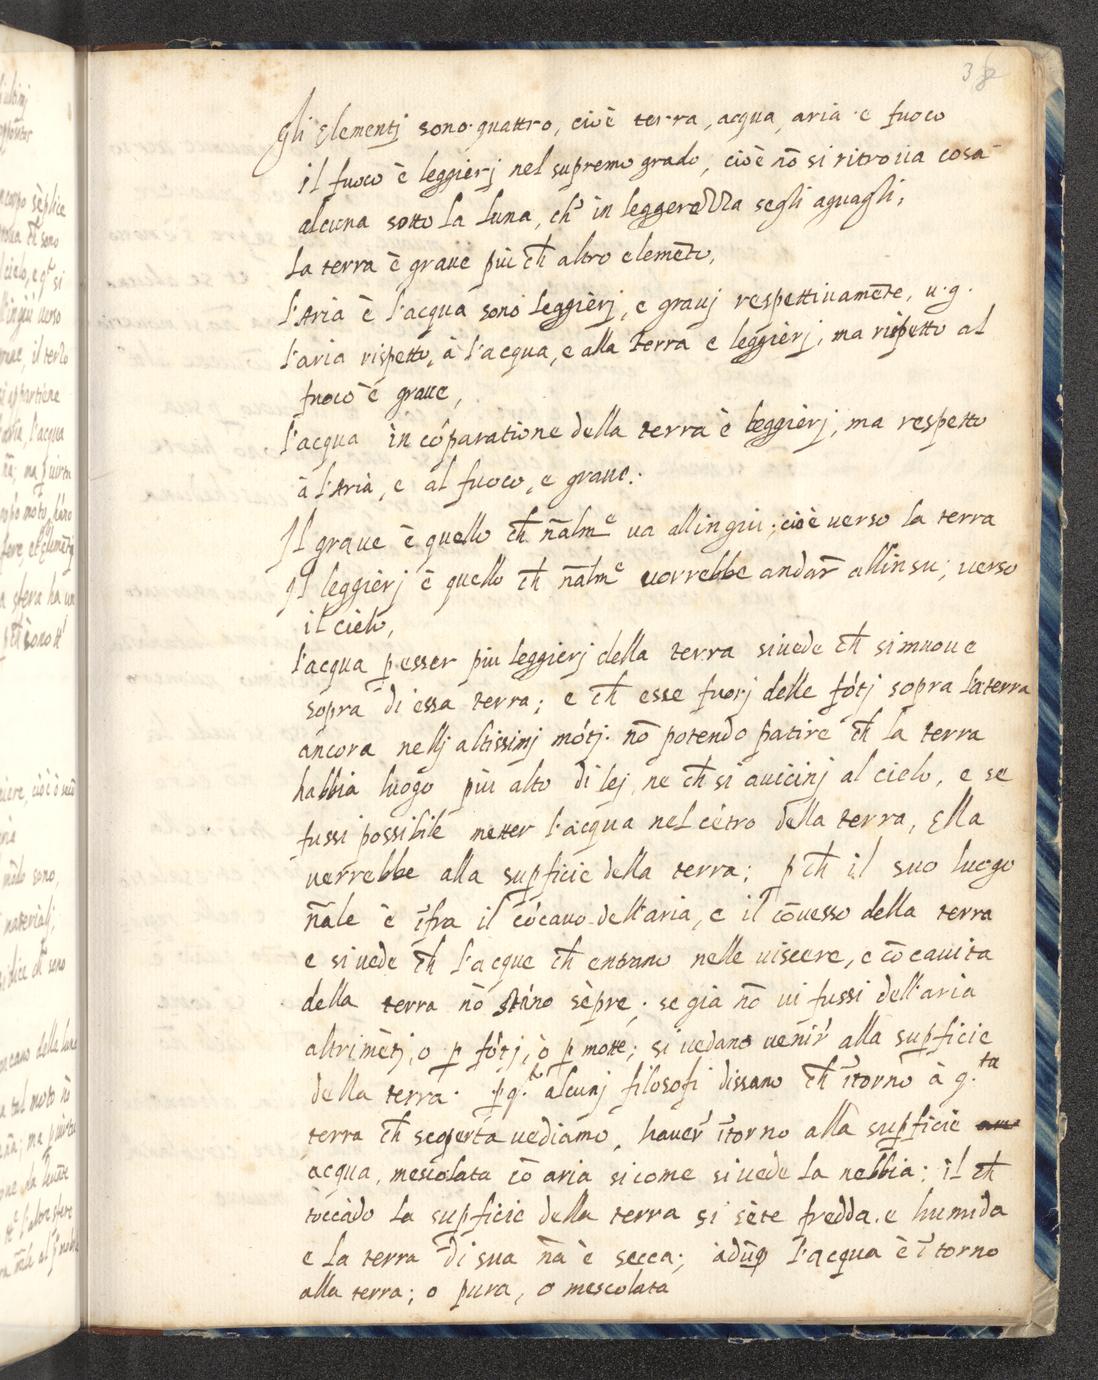 38
Gli Elementj sono quattro, cioè terra, acqua, aria e fuoco
il fuoco è leggierj nel supremo grado, cioè nõ si ritroua cosa
alcuna sotto la luna, ch' in leggerezza segli aguaglj;
la terra è graue più ch̃ altro elemẽto,
l'Aria è l'acqua sono leggièrj, e grauj respettiuamẽte, u.g.
l'aria rispetto, à l'acqua, e alla terra e leggièrj, ma rispetto al
fuoco è graue,
l'acqua in cõparatione della terra è leggièrj, ma respetto
à l'Aria, e al fuoco, e graue.
Il graue è quello ch̃ ñalm.e ua allingiu; cioè uerso la terra
Il leggièrj è quello ch̃ ñalm.e uorrebbe andar̃ allinsu; uerso
il cielo,
l'acqua ꝑ esser piu leggierj della terra siuede ch̃ simuoue
sopra di essa terra; e ch̃ esse fuorj delle fõtj sopra la terra
ancora nellj altissimj mõtj. nõ potendo patire ch̃ la terra
habbia luogo piu alto di lej, ne ch̃ si auicinj al cielo, e se
fussi possibile metter l'acqua nel cẽtro della terra, Ella
uerrebbe alla suꝑficie della terra; ꝑ ch̃ il suo luogo
ñale è ĩfra il cõcauo dell'aria, e il cõuesso della terra
e si uede ch̃ l'acque ch̃ entrano nelle uiscere, e cõcauita
della terra nõ stãno sẽpre; se già nõ ui fussi dell'aria
altrimẽtj, o ꝑ fõtj, ò ꝑ mote; si uedano uenir' alla suꝑficie
della terra. ꝑ q.to alcunj filosofi dissano ch̃ ĩtorno à q.ta
terra ch̃ scoperta uediamo, hauer' ĩtorno alla suꝑficie
acqua, mescolata cõ aria sicome siuede la nebbia; il ch̃
toccãdo la suꝑficie della terra si sẽte fredda. e humida
e la terra di sua ña è secca; adũq l'acqua è ĩtorno
alla terra; o pura, o mescolata